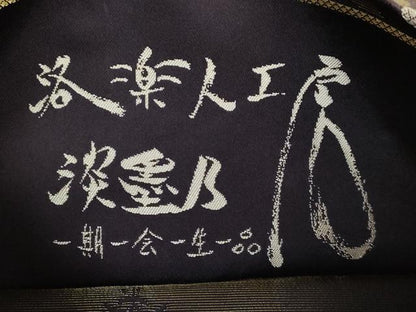 洛楽人工房
淡墨乃
一期一会一生一品